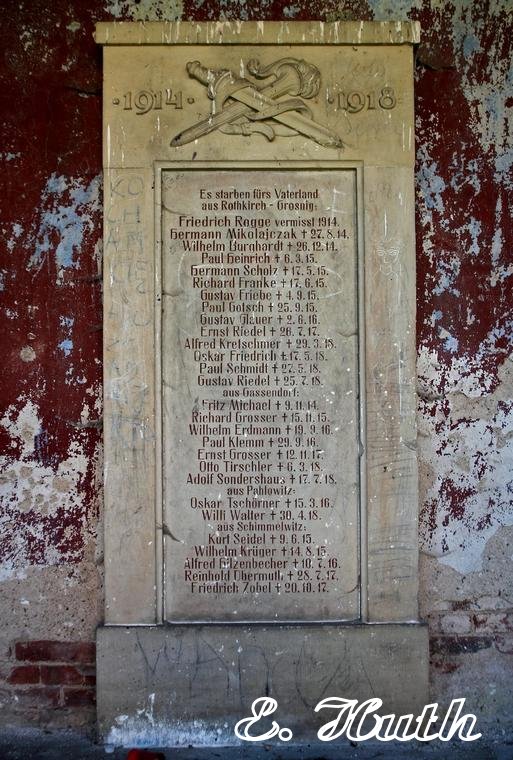 ·1914· ·1918·
Es starben fürs Vaterland
aus Rothkirch - Grosnig:
Friedrich Rogge vermisst 1914.
Hermann Mikolajczak † 27.8.14.
Wilhelm Burghardt † 26.12.14.
Paul Heinrich † 6.3.15.
Hermann Scholz † 17.5.15.
Richard Franke † 17.6.15.
Gustav Friebe † 4.9.15.
Paul Gotsch † 25.9.15.
Gustav Glauer † 2.6.16.
Ernst Riedel † 26.7.17.
Alfred Kretschmer † 29.3.18.
Oskar Friedrich † 17.5.18.
Paul Schmidt † 27.5.18.
Gustav Riedel † 25.7.18.
aus Gassendorf:
Fritz Michael † 9.11.14.
Richard Grosser † 15.11.15.
Wilhelm Erdmann † 19.9.16.
Paul Klemm † 29.9.16.
Ernst Grosser † 12.11.17.
Otto Tirschler † 6.3.18.
Adolf Sondershaus † 17.7.18.
aus Pahlowitz:
Oskar Tschörner † 15.3.16.
Willi Walter † 30.4.18.
aus Schimmelwitz:
Kurt Seidel † 9.6.15.
Wilhelm Krüger † 14.8.15.
Alfred Hilzenbecher † 10.7.16.
Reinhold Obermuth † 28.7.17.
Friedrich Zobel † 20.10.17.
E. Huth